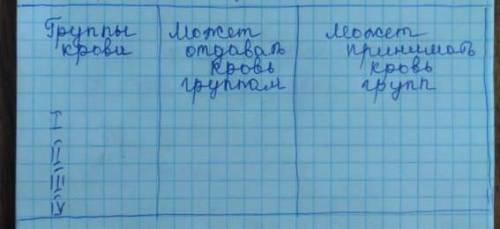 Группы
крови
Может
отдавать
кровь
группам
Может
принимать
кровь
групп
I
II
III
IV